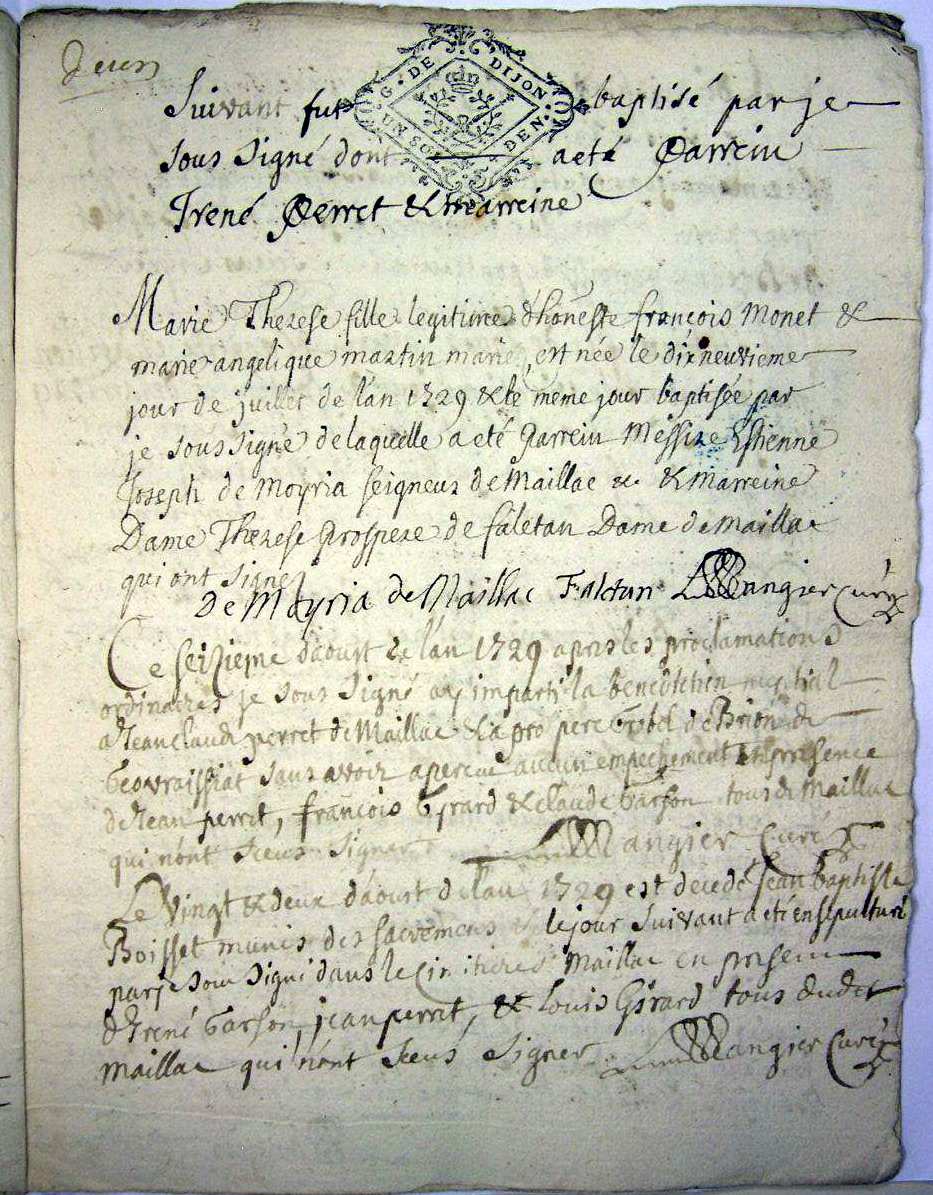 deux
G. DE DIJON
UN SOL DEN.
Suivant fut baptisé par je
sous signé dont a eté Parrein
Irené Perret & Marreine
Marie Therese fille legitime d'honeste françois Monet &
marie angelique martin mariés, est née le dixneuvieme
jour de juillet de lán 1729 & le même jour baptisée par
je sous signé de laquelle a eté Parrein Messire Estienne
Joseph de Moyria seigneur de Maillac &c. & Marreine
Dame Therese Prospere de faletan Dame de Maillac
qui ont signé
De Moyria de Maillac Faletan Mangier Curé
Ce seizieme dáoust de lán 1729 apres les proclamations
ordinaires je sous signé ay imparti la benediction nuptial
a Jean claude perret de Maillac & a de Brion de
Geovraissiat sans avoir aperceu aucun empechement en presence
de Jean perret, françois Girard & claude Garson tous de Maillac
qui nónt sceus signer Mangier Curé
Le vingt & deux dáoust de lan 1729 est decedé Jean baptiste
Boisset munis des sacremens & le jour suivant a eté ensepulturé
par je sous signé dans le Cimitiere de Maillac en presence
d'Irené Garson, jean perret, & Louis Girard tous dudit
Maillac qui nónt sceus signer Mangier Curé